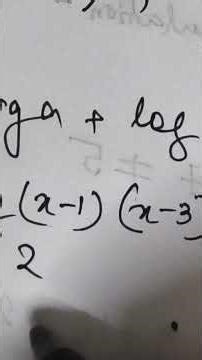 log a + log
(x-1) (x-3)
2